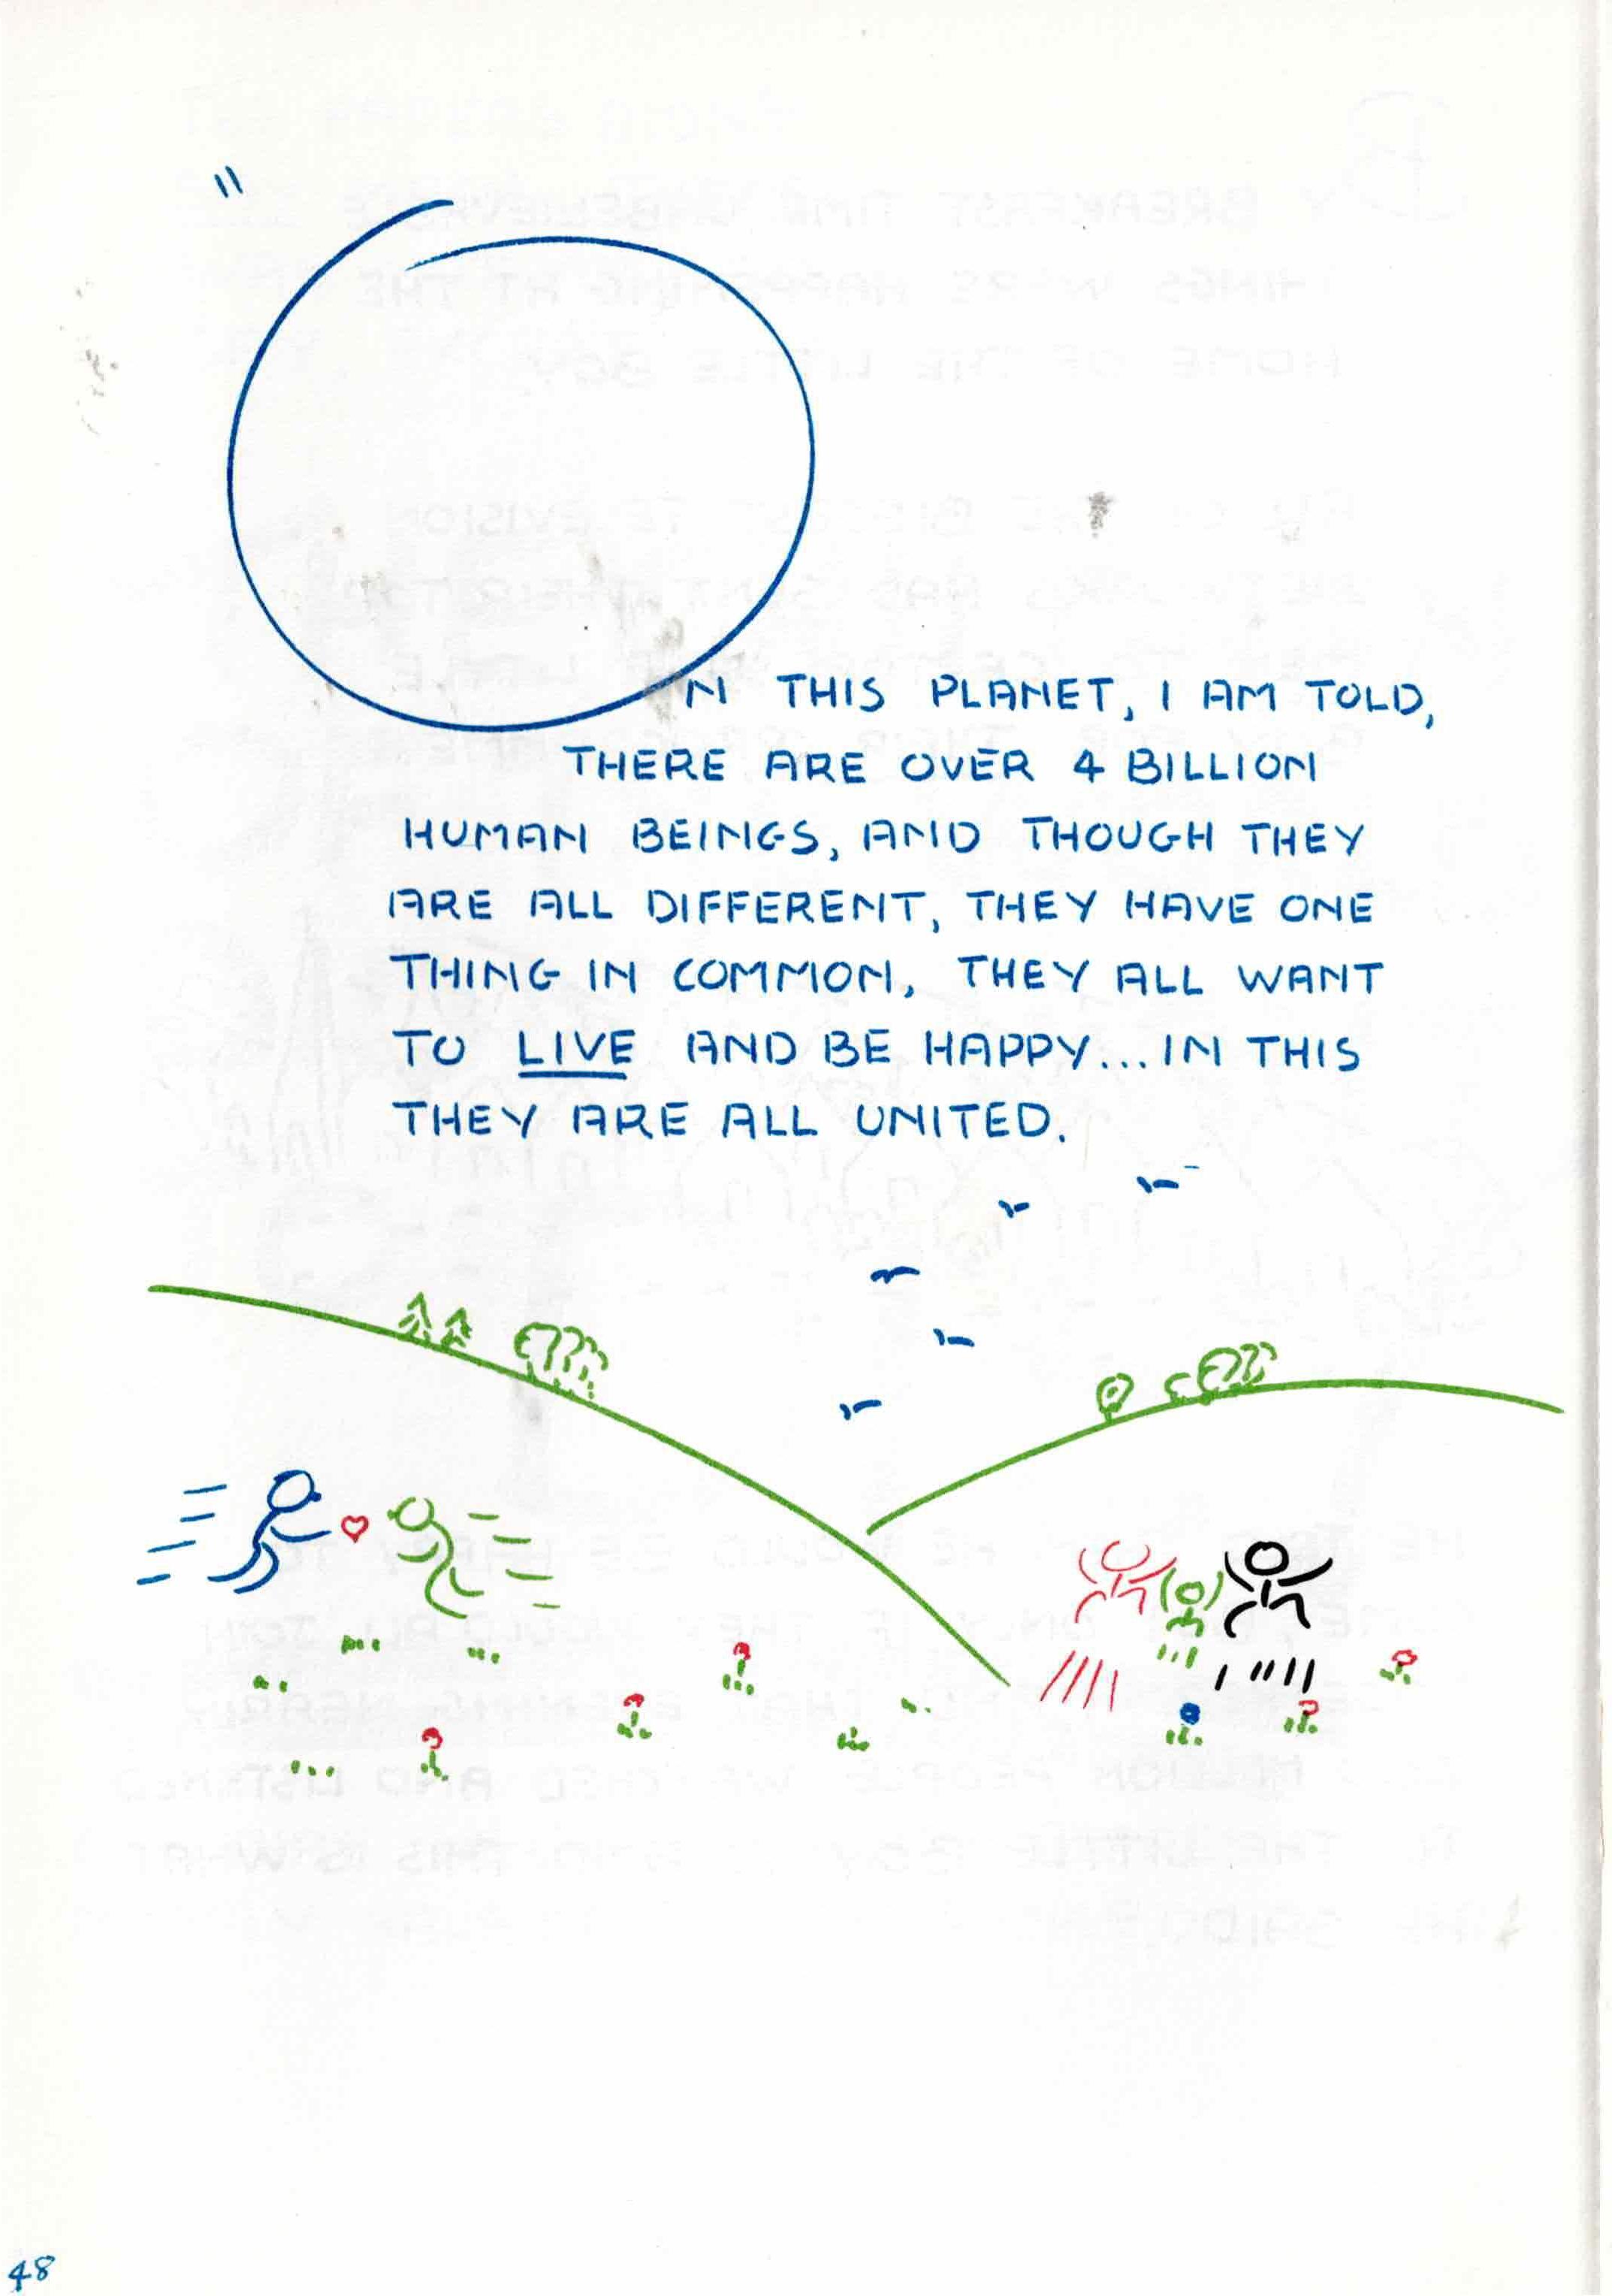 "ON THIS PLANET, I AM TOLD,
THERE ARE OVER 4 BILLION
HUMAN BEINGS, AND THOUGH THEY
ARE ALL DIFFERENT, THEY HAVE ONE
THING IN COMMON, THEY ALL WANT
TO LIVE AND BE HAPPY... IN THIS
THEY ARE ALL UNITED.
48